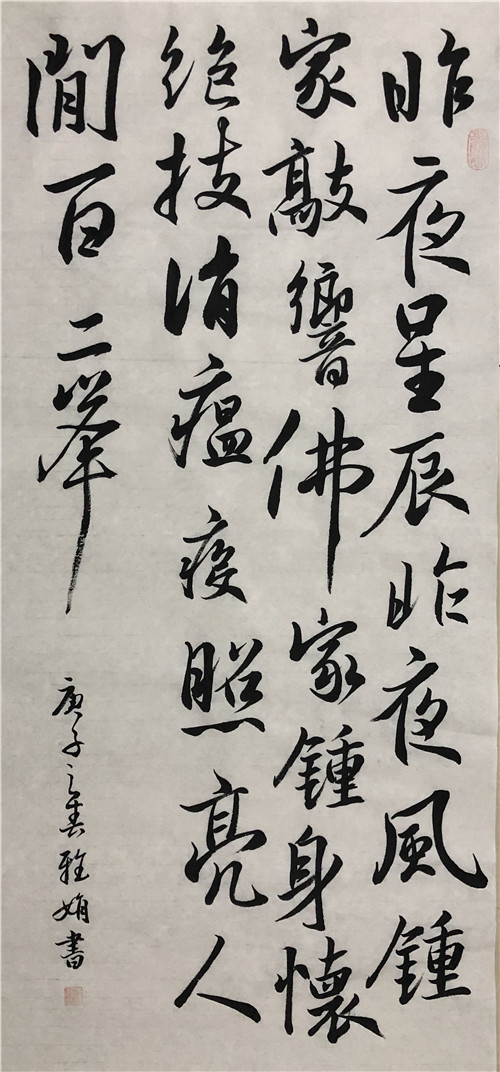 昨夜星辰昨夜風鍾
家敲響佛家鍾身懷
絶技消瘟疫照亮人
閒百二峯
庚子之春雅娟書